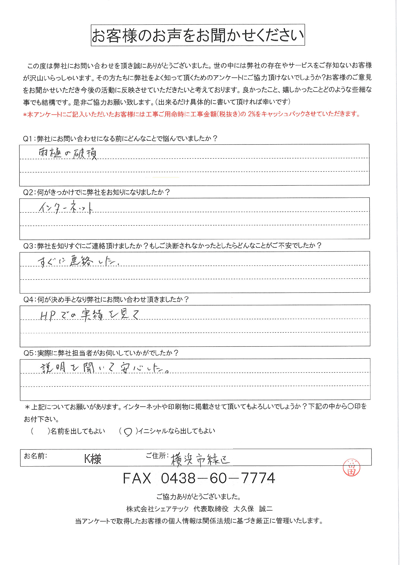 お客様のお声をお聞かせください
この度は弊社にお問い合わせを頂き誠にありがとうございました。世の中には弊社の存在やサービスをご存知ないお客様
が沢山いらっしゃいます。その方たちに弊社をよく知って頂くためのアンケートにご協力頂けないでしょうか?お客様のご意見
をお聞かせいただき今後の活動に反映させていただきたいと考えております。良かったこと、嬉しかったことどのような些細な
事でも結構です。是非ご協力お願い致します。(出来るだけ具体的に書いて頂ければ幸いです)
*本アンケートにご記入いただいたお客様には工事ご用命時に工事金額(税抜き)の2%をキャッシュバックさせていただきます。
Q1:弊社にお問い合わせになる前にどんなことで悩んでいましたか?
雨樋の破損
Q2:何がきっかけでに弊社をお知りになりましたか?
インターネット
Q3:弊社を知りすぐにご連絡頂けましたか?もしご決断されなかったとしたらどんなことがご不安でしたか?
すぐに連絡した。
Q4:何が決め手となり弊社にお問い合わせ頂きましたか?
HPでの実績を見て
Q5:実際に弊社担当者がお伺いしていかがでしたか?
説明を聞いて安心した。
*上記についてお願いがあります。インターネットや印刷物に掲載させて頂いてもよろしいでしょうか?下記の中から〇印を
お付下さい。
( )名前を出してもよい (〇)イニシャルなら出してもよい
お名前: K様 ご住所: 横浜市緑区
FAX 0438-60-7774
ご協力ありがとうございました。
株式会社シェアテック 代表取締役 大久保 誠二
当アンケートで取得したお客様の個人情報は関係法規に基づき厳正に管理いたします。